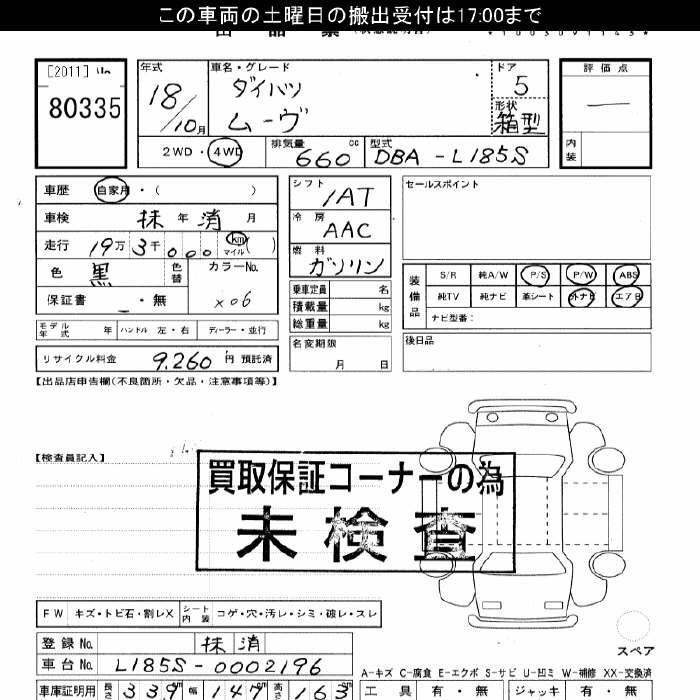 この車両の土曜日の搬出受付は17:00まで
[2011]
80335
年式 18/10月
車名・グレード ダイハツ ムーヴ
ドア 5
形状 箱型
評価点 —
内装
2WD・4WD
排気量 660 cc
型式 DBA-L185S
車歴 自家用・( )
車検 抹 年 消 月
走行 19万3千000 km マイル ( )
色 黒 色替
カラーNo. X06
保証書 ・無
シフト 1AT
冷房 AAC
燃料 ガソリン
乗車定員 名
積載量 kg
総重量 kg
名変期限
月 日
セールスポイント
装備品
S/R 純A/W P/S P/W ABS
純TV 純ナビ 革シート 外ナビ エアB
ナビ型番:
後日品
モデル年式 年 ハンドル 左・右 ディーラー・並行
リサイクル料金 9,260 円 預託済
【出品店申告欄(不良箇所・欠品・注意事項等)】
【検査員記入】
買取保証コーナーの為
未検査
FW キズ・トビ石・割レX シート内装 コゲ・穴・汚レ・シミ・破レ・スレ
スペア
登録No. 抹消
車台No. L185S-0002196
A-キズ C-腐食 E-エクボ S-サビ U-凹ミ W-補修 XX-交換済
車庫証明用 長さ 339 幅 147 高さ 163
工具 有・無 ジャッキ 有・無